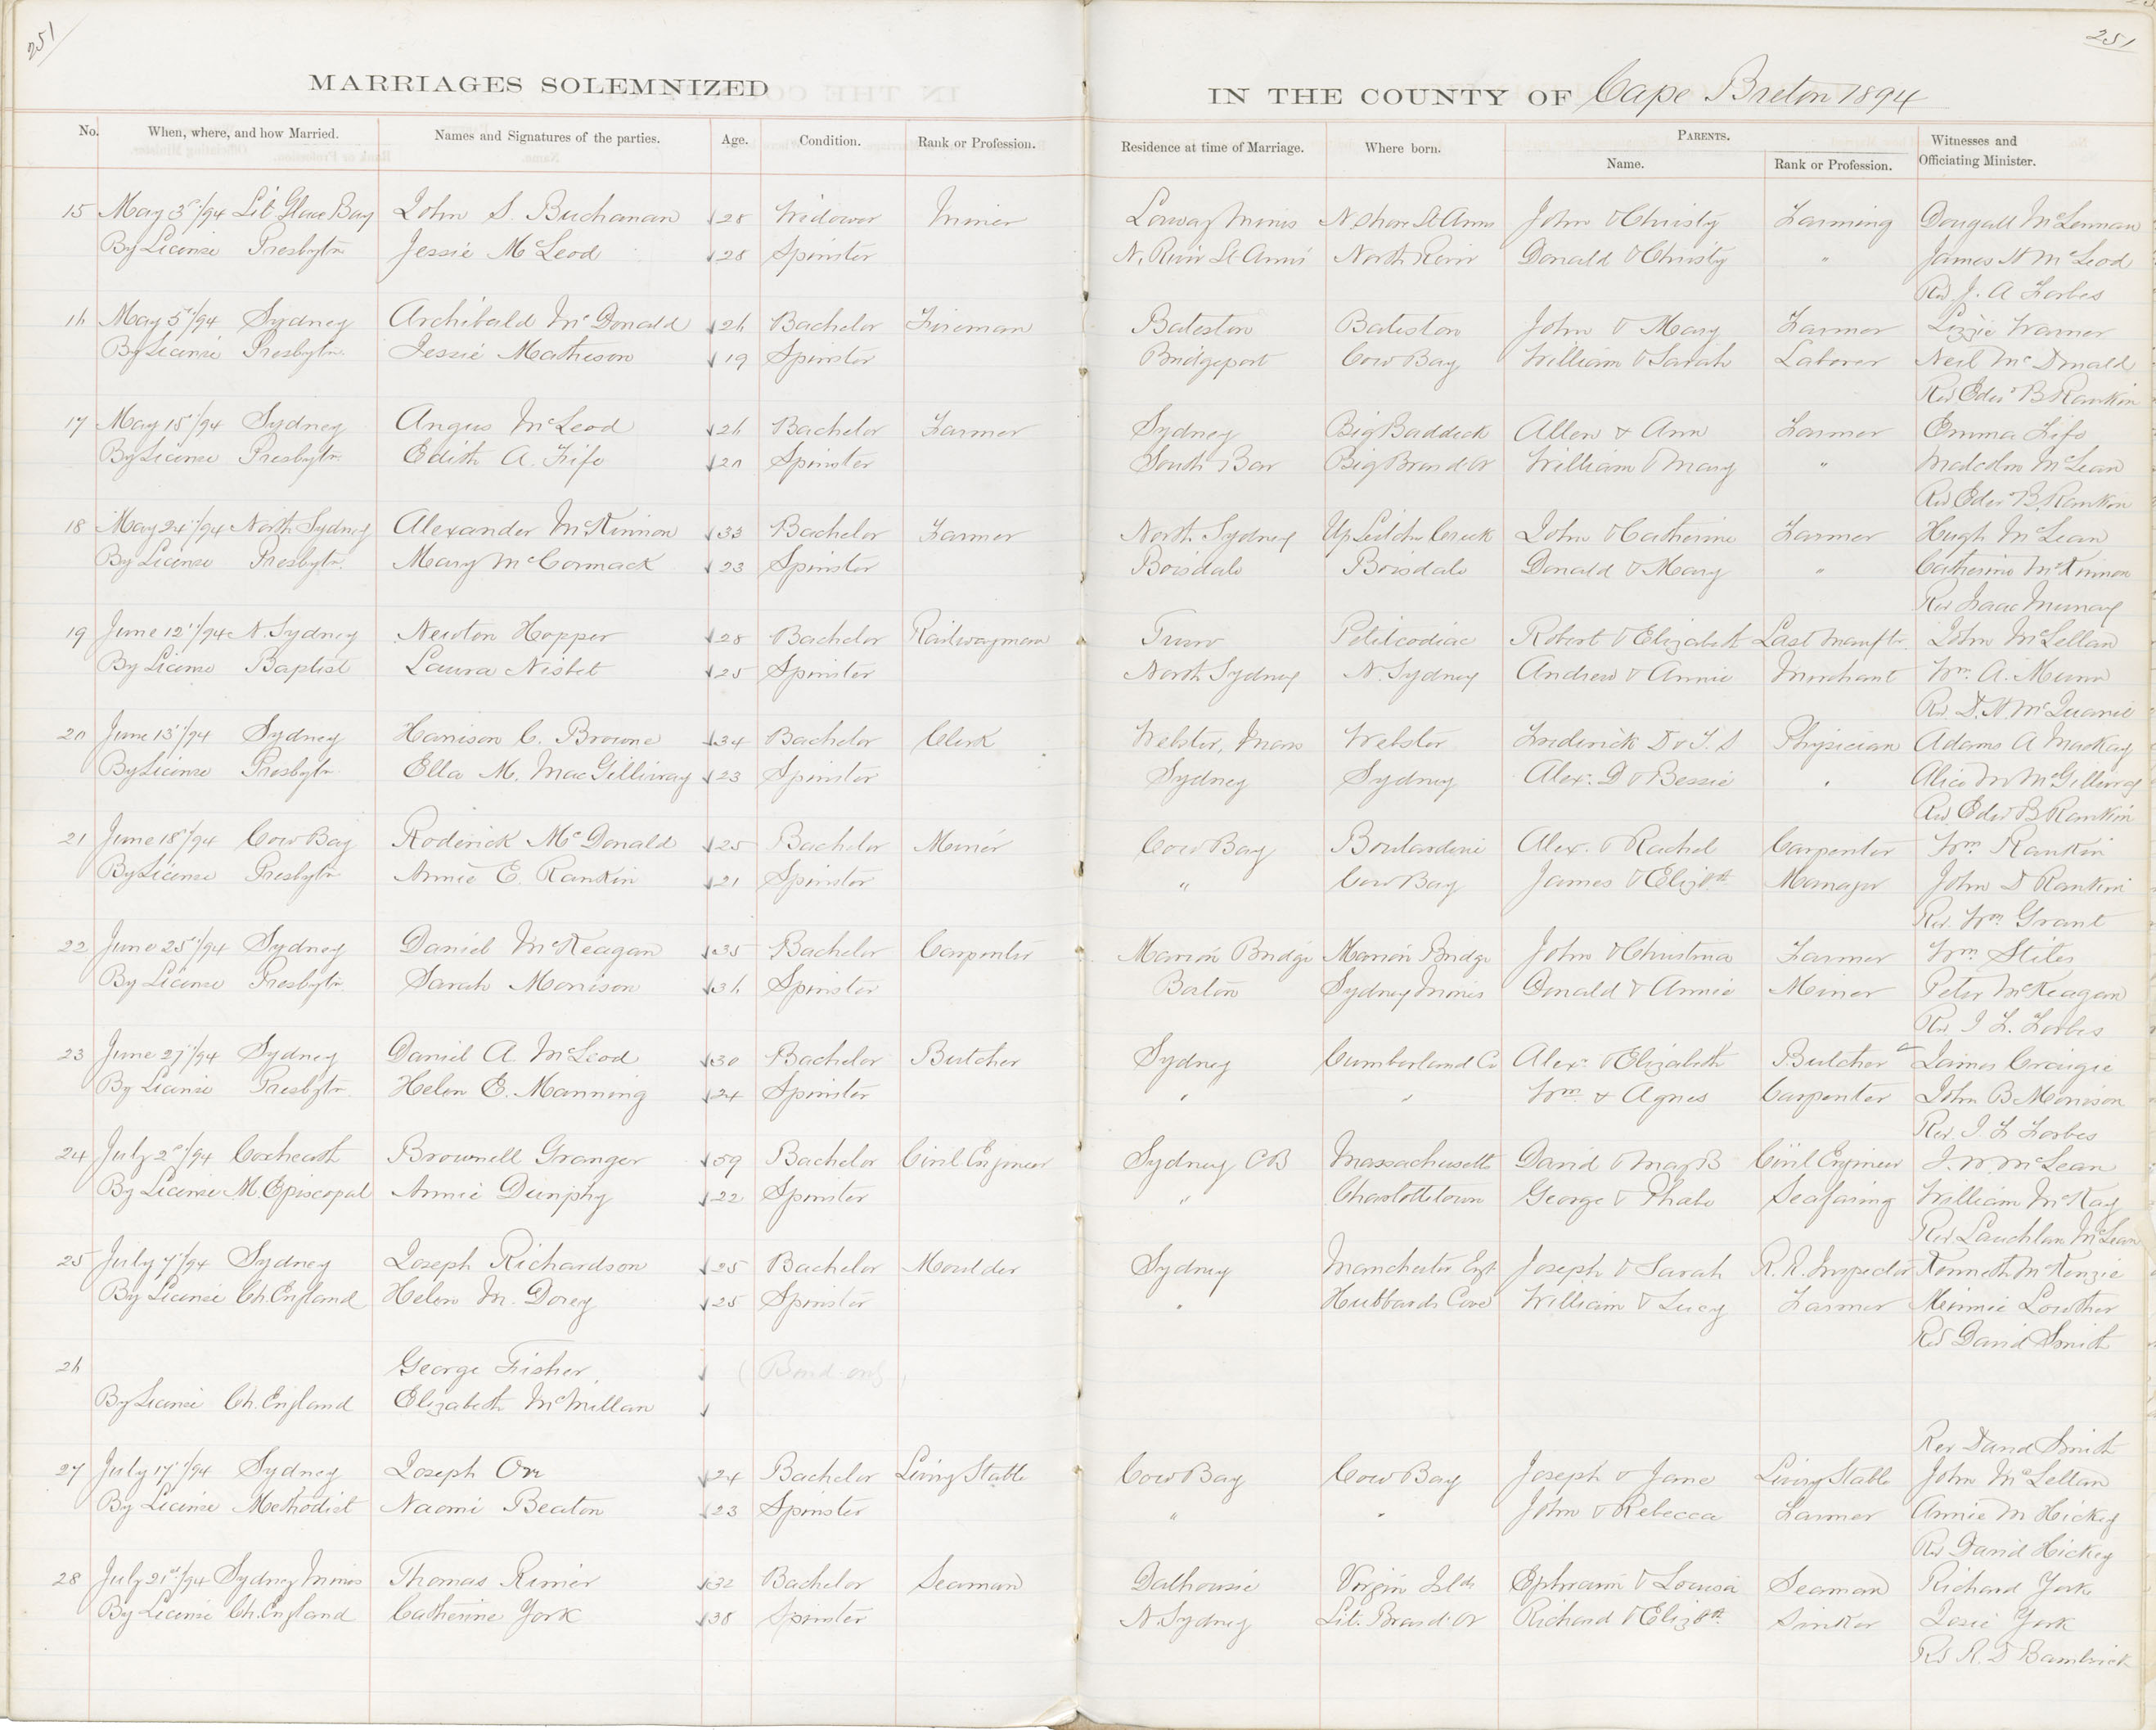 251
251
MARRIAGES SOLEMNIZED
IN THE COUNTY OF Cape Breton 1894
No. When, where, and how Married. Names and Signatures of the parties. Age. Condition. Rank or Profession. Residence at time of Marriage. Where born. PARENTS. Name. Rank or Profession. Witnesses and Officiating Minister.
15 May 3d/94 Lit Glace Bay John S. Buchanan 28 Widower Miner Lorway Mines N Shore St Anns John & Christy Farming Dougall McLennan
By License Presbytn Jessie McLeod 28 Spinster N. River St Anns North River Donald & Christy " James H McLeod
Rev J. A Forbes
16 May 5th/94 Sydney Archibald McDonald 26 Bachelor Fireman Bateston Bateston John & Mary Farmer Lizzie Warner
By License Presbytn. Jessie Matheson 19 Spinster Bridgeport Cow Bay William & Sarah Laborer Neil McDonald
Rev Edw B Rankin
17 May 15th/94 Sydney Angus McLeod 26 Bachelor Farmer Sydney Big Baddeck Allen & Ann Farmer Emma Fife
By License Presbytn. Edith A. Fife 20 Spinster South Bar Big Bras d'Or William & Mary " Malcolm McLean
Rev Edw B. Rankin
18 May 24th/94 North Sydney Alexander McKinnon 33 Bachelor Farmer North Sydney Up Leitches Creek John & Catherine Farmer Hugh McLean
By License Presbytn. Mary McCormack 23 Spinster Boisdale Boisdale Donald & Mary " Catherine McKinnon
Rev Isaac Murray
19 June 12th/94 N. Sydney Newton Hopper 28 Bachelor Railwayman Truro Petitcodiac Robert & Elizabeth Last Manftr. John McLellan
By License Baptist Laura Nisbet 25 Spinster North Sydney N. Sydney Andrew & Annie Merchant Wm. A. Munn
Rev. D. H. McQuarrie
20 June 13th/94 Sydney Harrison C. Browne 34 Bachelor Clerk Webster, Mass Webster Frederick D & T. S Physician Adams A MacKay
By License Presbytn. Ella M. MacGillivray 23 Spinster Sydney Sydney Alex. D & Bessie " Alice M McGillivray
Rev Edw B Rankin
21 June 18th/94 Cow Bay Roderick McDonald 25 Bachelor Miner Cow Bay Boulardarie Alex. & Rachel Carpenter Wm Rankin
By License Presbytn Annie E. Rankin 21 Spinster " Cow Bay James & Elizbth Manager John D Rankin
Rev. Wm Grant
22 June 25th/94 Sydney Daniel McKeagan 35 Bachelor Carpenter Marion Bridge Marion Bridge John & Christina Farmer Wm Stiles
By License Presbytn. Sarah Morrison 36 Spinster Boston Sydney Mines Donald & Annie Miner Peter McKeagan
Rev J F. Forbes
23 June 27th/94 Sydney Daniel A. McLeod 30 Bachelor Butcher Sydney Cumberland Co Alex. & Elizabeth Butcher James Craigie
By License Presbytn. Helen E. Manning 24 Spinster " " Wm & Agnes Carpenter John B Morrison
Rev. J F Forbes
24 July 2d/94 Coxheath Brownell Granger 59 Bachelor Civil Engineer Sydney CB Massachusetts David & Mary B Civil Engineer J. W McLean
By License M. Episcopal Annie Dunphy 22 Spinster " Charlottetown George & Phalo Seafaring William McKay
Rev Lauchlan McLean
25 July 7th/94 Sydney Joseph Richardson 25 Bachelor Moulder Sydney Manchester Engt Joseph & Sarah R. R. Inspector Kenneth McKenzie
By License Ch. England Helen M. Dorey 25 Spinster " Hubbards Cove William & Lucy Farmer Minnie Lowther
Rev David Smith
26 George Fisher (Bond only)
By License Ch. England Elizabeth McMillan
Rev David Smith
27 July 17th/94 Sydney Joseph Orr 24 Bachelor Livery Stable Cow Bay Cow Bay Joseph & Jane Livery Stable John McLellan
By License Methodist Naomi Beaton 23 Spinster " " John & Rebecca Farmer Annie M Hickey
Rev David Hickey
28 July 21st/94 Sydney Mines Thomas Rimer 32 Bachelor Seaman Dalhousie Virgin Islds Ephraim & Louisa Seaman Richard York
By License Ch. England Catherine York 38 Spinster N. Sydney Lit. Bras d'Or Richard & Elizbth. Sinker Josie York
Rev R. D Bambrick